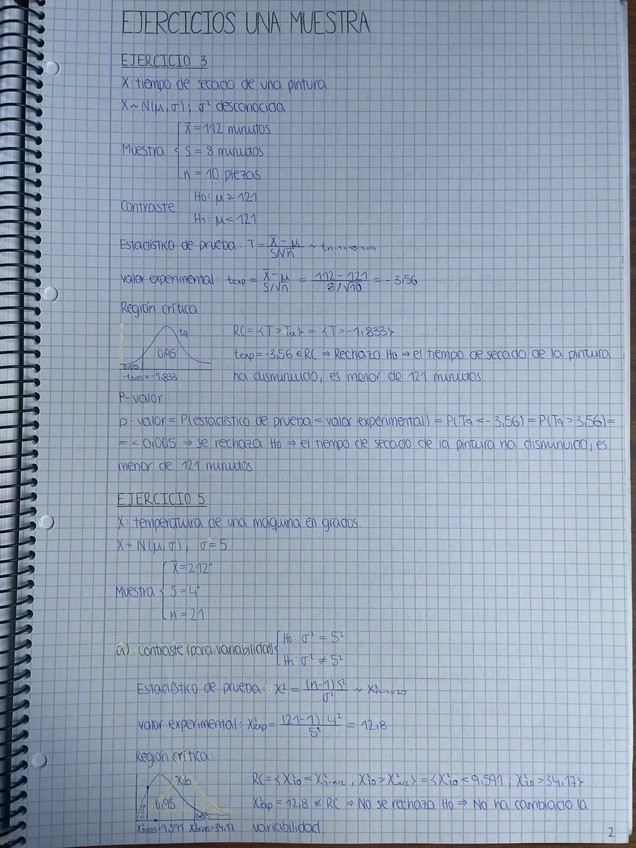 EJERCICIOS UNA MUESTRA
EJERCICIO 3
X: tiempo de secado de una pintura
X ~ N(μ, σ); σ² desconocida
X̄ = 112 minutos
Muestra { S = 8 minutos
n = 10 piezas
H₀: μ ≥ 121
Contraste
H₁: μ < 121
Estadístico de prueba: T = (X̄ - μ)/(S/√n) ~
Valor experimental: t_exp = (X̄ - μ)/(S/√n) = (112 - 121)/(8/√10) = -3,56
Región crítica
t₉ RC = {T > Tα} = {T > -1,833}
0,95 t_exp = -3,56 ∈ RC ⇒ Rechazo H₀ ⇒ el tiempo de secado de la pintura
= -1,833 ha disminuido, es menor de 121 minutos
P-valor
p-valor = P(estadístico de prueba = valor experimental) = P(T₉ < -3,56) = P(T₉ > 3,56) =
= < 0,005 ⇒ se rechaza H₀ ⇒ el tiempo de secado de la pintura ha disminuido, es
menor de 121 minutos
EJERCICIO 5
X: temperatura de una máquina en grados
X ~ N(μ, σ), σ = 5
X̄ = 212°
Muestra { S = 4°
n = 21
a) Contraste (para variabilidad) { H₀: σ² = 5²
H₁: σ² ≠ 5²
Estadístico de prueba: χ² = (n-1)S²/σ² ~
Valor experimental: χ²_exp = (21-1) 4²/5² = 12,8
Región crítica:
χ²₂₀ RC = {χ²₂₀ < χ²₁₋α/₂, χ²₂₀ > χ²α/₂} = {χ²₂₀ < 9,591, χ²₂₀ > 34,17}
0,95 χ²_exp = 12,8 ∉ RC ⇒ No se rechaza H₀ ⇒ No ha cambiado la
= 9,591 = 34,17 variabilidad
2